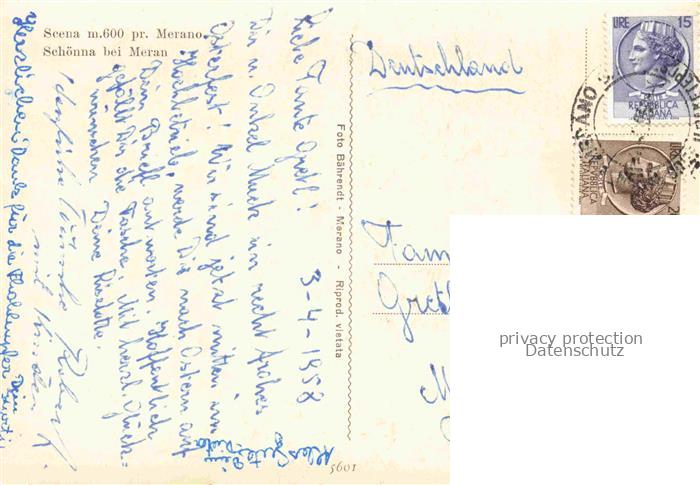 Scena m.600 pr. Merano
Schönna bei Meran
3-4-1958
Liebe Tante Gretl!
Dir u. Onkel Muck ein recht frohes
Osterfest! Wir sind jetzt mitten im
Hochbetrieb, werde Dir nach Ostern auf
Dein Brieft antworten. Hoffentlich
gefällt Dir die Tasche. Mit herzl. Glück=
wünschen Deine
mit Kindern
Herzlichen Dank für die Dein
Alles Gute
Foto Bährendt - Merano - Riprod. vietata
5601
Deutschland
Fam
Gretl
M
LIRE 15
REPUBBLICA
ITALIANA
LIRE 2
REPUBBLICA
ITALIANA
privacy protection
Datenschutz